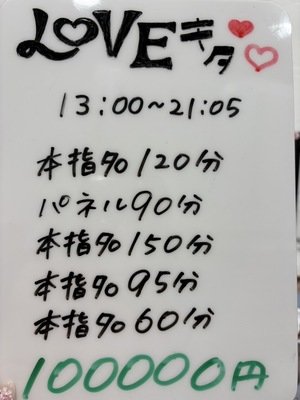 LOVEキタ
13:00~21:05
本指名120分
パネル90分
本指名150分
本指名95分
本指名60分
100000円